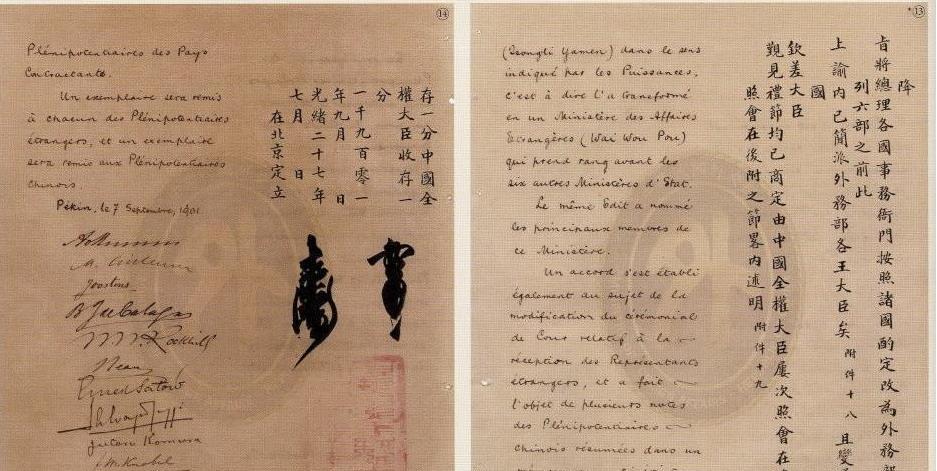 14
Plénipotentiaires des Pays
Contractants.
Un exemplaire sera remis
à chacun des Plénipotentiaires
étrangers, et un exemplaire
sera remis aux Plénipotentiaires
chinois.
Pékin, le 7 Septembre, 1901
Joostens
B. J. de Cologan
W. W. Rockhill
Beau
Ernest Satow
Salvago Raggi
Jutaro Komura
Knobel
存一分中國全
權大臣收存一
分
一千九百零一
年九月 日
光緒二十七年
七月 日
在北京定立
13
(Tsongli Yamen) dans le sens
indiqué par les Puissances,
c'est à dire l'a transformé
en un Ministère des Affaires
Etrangères (Wai Wou Pou)
qui prend rang avant les
six autres Ministères d'Etat.
Le même Edit a nommé
les principaux membres de
ce Ministère.
Un accord s'est établi
également au sujet de la
modification du cérémonial
de Cour relatif à la
réception des Représentants
étrangers, et a fait
l'objet de plusieurs notes
des Plénipotentiaires
chinois résumées dans un
降
旨將總理各國事務衙門按照諸國酌定改為外務部
列六部之前此
上諭內已簡派外務部各王大臣矣 附件十八 且變
國
欽差大臣
覲見禮節均已商定由中國全權大臣屢次照會在
照會在後附之節畧內述明 附件十九